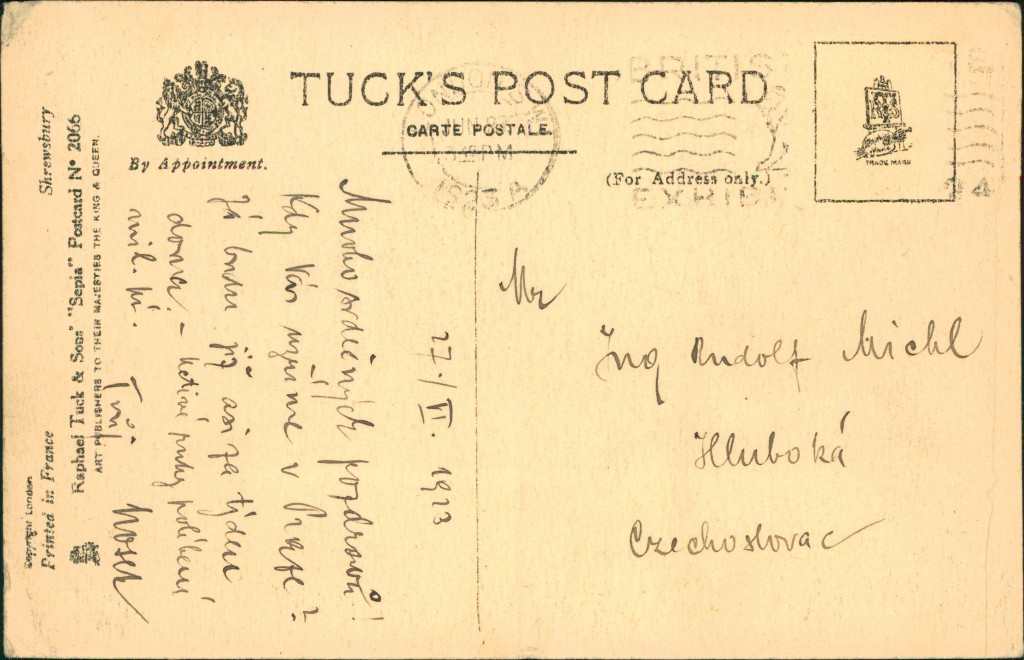 TUCK'S POST CARD
CARTE POSTALE.
(For Address only.)
By Appointment.
TRADE MARK
LONDON
JUN 27
PM
1923
BRITISH
EXHIBI
24
27./VI. 1923
Mnoho srdečných pozdravů!
Kdy Vás uzříme v Praze?
Já budu již asi za týden
doma. – políbení
mil. pí.
Tvůj
Mr
Ing Rudolf Michl
Hluboká
Czechoslovac
Shrewsbury
Raphael Tuck & Sons' "Sepia" Postcard Nº 2066
ART PUBLISHERS TO THEIR MAJESTIES THE KING & QUEEN.
Copyright London
Printed in France